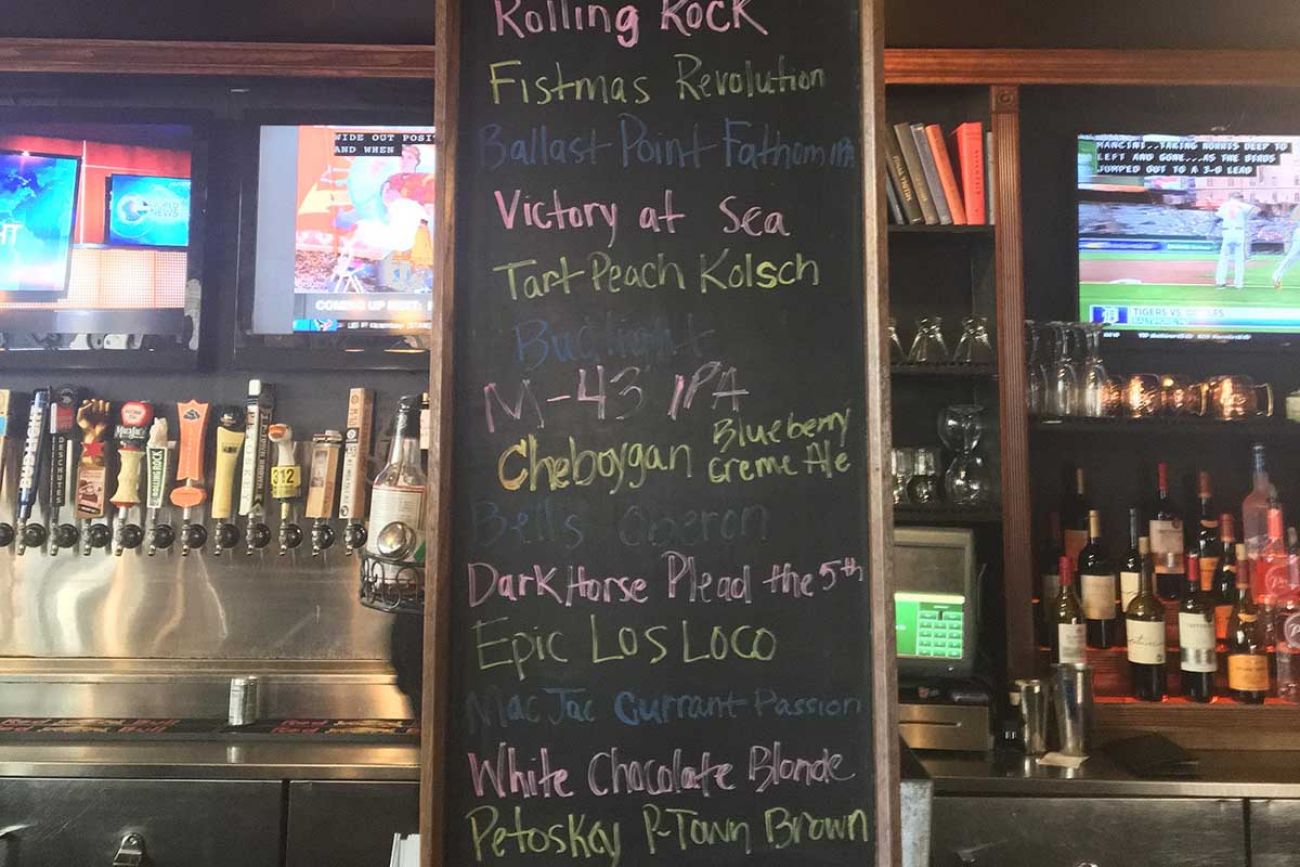 Rolling Rock
Fistmas Revolution
Ballast Point Fathom IPA
Victory at Sea
Tart Peach Kolsch
Bud light
M-43 IPA
Cheboygan Blueberry
Creme Ale
Bells Oberon
Dark Horse Plead the 5th
Epic Los Loco
Mac Jac Currant Passion
White Chocolate Blonde
Petoskey P-Town Brown
HT
WORLD
NEWS
WIDE OUT POSI
AND WHEN
COMING UP NEXT:
BUD LIGHT
DESCHUTES
ROLLING ROCK
312
MANCINI...TAKING NORRIS DEEP TO
LEFT AND GONE...AS THE BIRDS
JUMPED OUT TO A 3-0 LEAD
TIGERS VS.